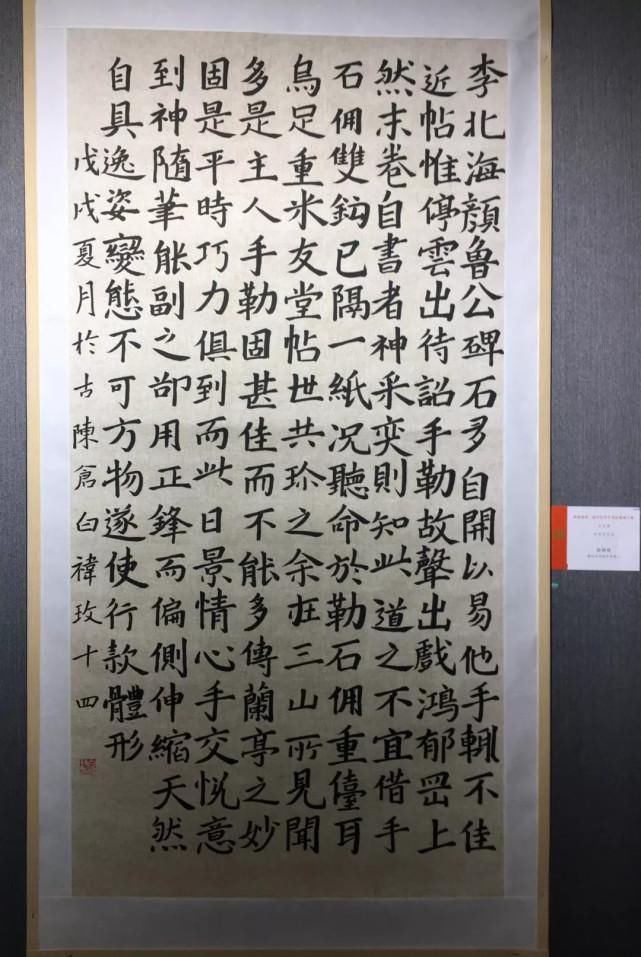 李北海顏魯公碑石多自開以易他手輒不佳
近帖惟停雲出待詔手勒故聲出戲鴻郁罡上
然末卷自書者神采奕則知此道之不宜借手
石佣雙鈎已隔一紙况聽命於勒石佣重儓耳
烏足重米友堂帖世共珍之余在三山所見聞
多是主人手勒固甚佳而不能多傳蘭亭之妙
固是平時巧力俱到而此日景情心手交悅意
到神随筆能副之卻用正鋒而偏側伸縮天然
自具逸姿變態不可方物遂使行款體形
戊戌夏月於古陳倉白禕玫十四